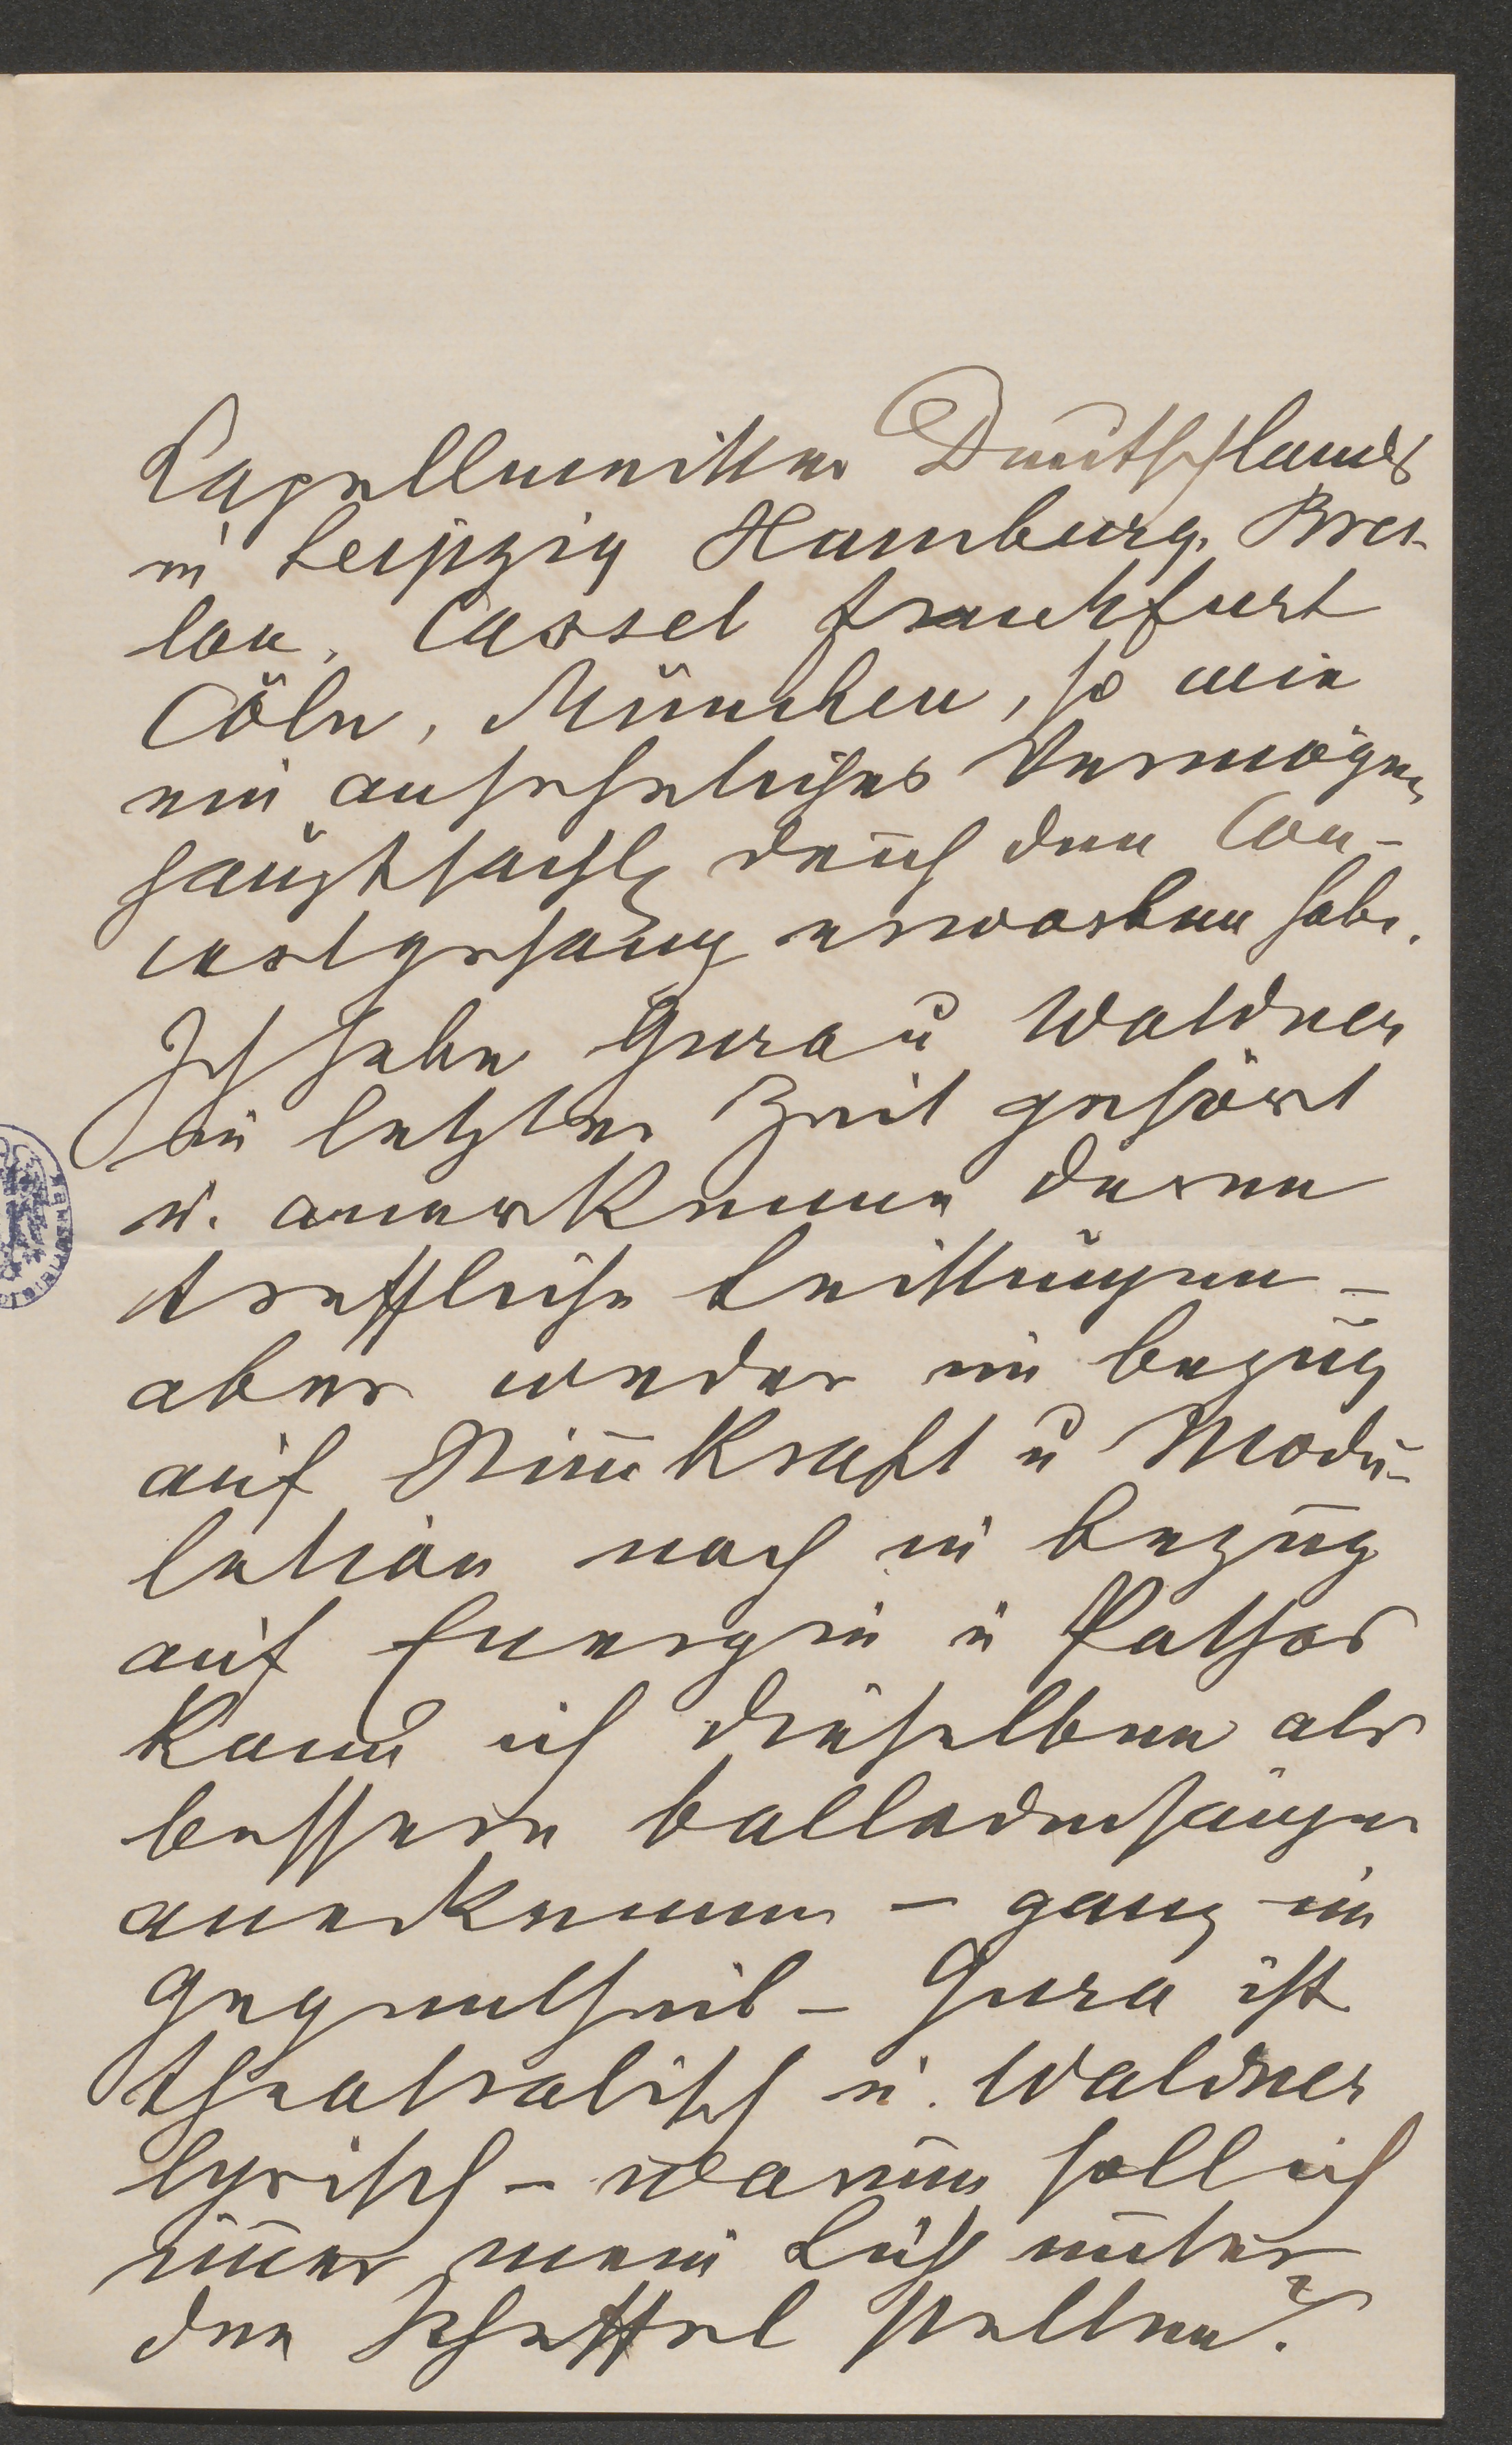 Capellmeister Deutschlands
in Leipzig Hamburg, Bres-
lau, Cassel Frankfurt
Cöln, München, so wie
ein ansehnliches Vermögen
hauptsächl durch den Con-
certgesang erworben habe.
Ich habe Gura u Waldner
in letzter Zeit gehört
u. anerkenne deren
treffliche Leistungen –
aber weder in bezug
auf Stim̄kraft u Modu-
lation noch in bezug
auf Energie u Pathos
kann ich dieselben als
bessere Balladensänger
anerkennen – ganz im
Gegentheil – Gura ist
theatralisch u. Waldner
lyrisch – warum soll ich
im̄er mein Licht unter
den Scheffel stellen?